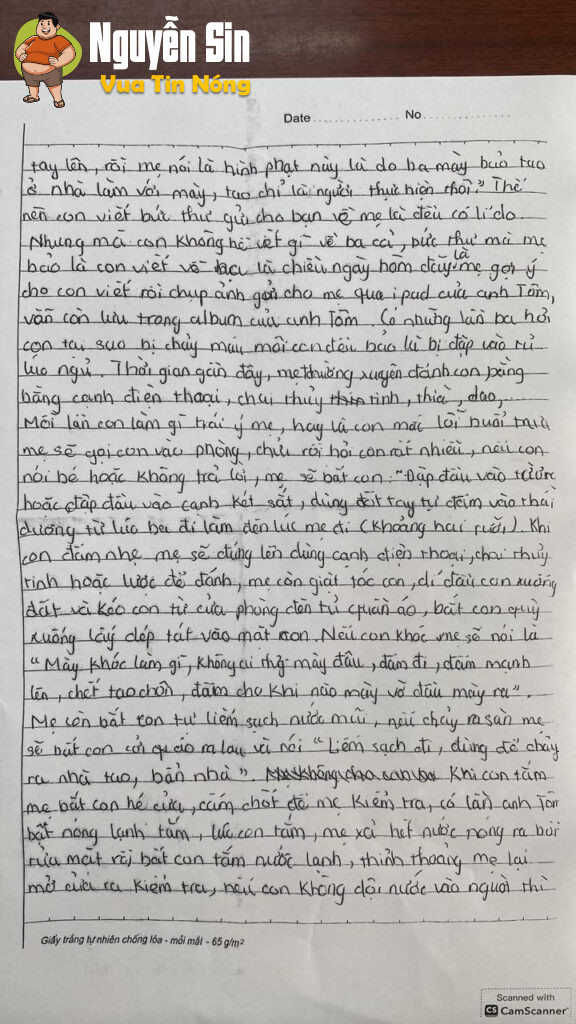 Nguyễn Sin
Vua Tin Nóng
Date............... No...............
tay lên, rồi mẹ nói là hình phạt này là do ba mày bảo tao
ở nhà làm với mày, tao chỉ là người thực hiện thôi." Thế
nên con viết bức thư gửi cho bạn về mẹ là đều có lí do.
Nhưng mà con không hề viết gì về ba cả, bức thư mà mẹ
bảo là con viết về ba là chiều ngày hôm đấy là mẹ gợi ý
cho con viết rồi chụp ảnh gửi cho mẹ qua ipad của anh Tôm,
vẫn còn lưu trong album của anh Tôm. Có những lần ba hỏi
con tại sao bị chảy máu môi con đều bảo là bị đập vào tủ
lúc ngủ. Thời gian gần đây, mẹ thường xuyên đánh con bằng
bằng cạnh điện thoại, chai thủy tinh, thìa, dao,
Mỗi lần con làm gì trái ý mẹ, hay là con mắc lỗi buổi trưa
mẹ sẽ gọi con vào phòng, chửi rồi hỏi con rất nhiều, nếu con
nói bé hoặc không trả lời, mẹ sẽ bắt con: "Đập đầu vào tường
hoặc đập đầu vào cạnh két sắt, dùng tay tự đấm vào thái
dương từ lúc ba đi làm đến lúc mẹ đi (khoảng hai rưỡi). Khi
con đấm nhẹ mẹ sẽ đứng lên dùng cạnh điện thoại, chai thủy
tinh hoặc lược để đánh, mẹ còn giật tóc con, dí đầu con xuống
đất và kéo con từ cửa phòng đến tủ quần áo, bắt con quỳ
xuống lấy dép tát vào mặt con. Nếu con khóc mẹ sẽ nói là
"Mày khóc làm gì, không ai thở mày đâu, đấm đi, đấm mạnh
lên, chết tao chôn, đấm cho khi nào mày vỡ đầu mày ra".
Mẹ còn bắt con tự liếm sạch nước mũi, nếu chảy ra sàn mẹ
sẽ bắt con cởi quần áo ra lau và nói "Liếm sạch đi, đừng để chảy
ra nhà tao, bẩn nhà". Khi con tắm
mẹ bắt con hé cửa, cấm chốt để mẹ kiểm tra, có lần anh Tôm
bật nóng lạnh tắm, lúc con tắm, mẹ xả hết nước nóng ra bồn
rửa mặt rồi bắt con tắm nước lạnh, thỉnh thoảng mẹ lại
mở cửa ra kiểm tra, nếu con không dội nước vào người thì
Giấy trắng tự nhiên chống lóa - mỏi mắt - 65 g/m²
Scanned with
CS CamScanner